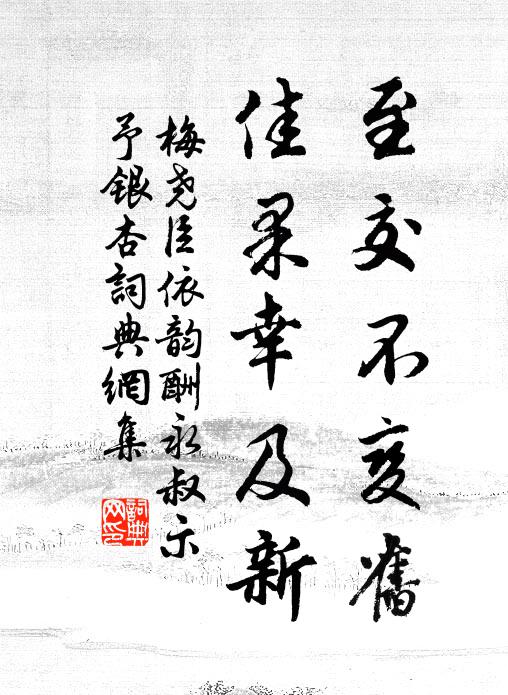 至交不变舊
佳果幸及新
梅尧臣依韵酬永叔示
予银杏詞典網集
詞典
网印